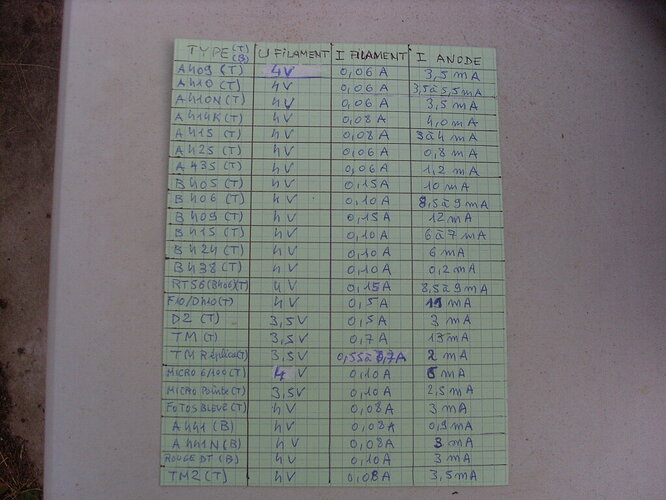 TYPE (T) (B) U FILAMENT I FILAMENT I ANODE
A409 (T) 4V 0,06 A 3,5 mA
A410 (T) 4V 0,06 A 3,5 à 5,5 mA
A410N (T) 4V 0,06 A 3,5 mA
A414K (T) 4V 0,08 A 4,0 mA
A415 (T) 4V 0,08 A 3 à 4 mA
A425 (T) 4V 0,06 A 0,8 mA
A435 (T) 4V 0,06 A 1,2 mA
B405 (T) 4V 0,15 A 10 mA
B406 (T) 4V 0,10 A 8,5 à 9 mA
B409 (T) 4V 0,15 A 12 mA
B415 (T) 4V 0,10 A 6 à 7 mA
B424 (T) 4V 0,10 A 6 mA
B438 (T) 4V 0,10 A 0,2 mA
RT56 (B406) (T) 4V 0,15 A 8,5 à 9 mA
F10/D410 (T) 4V 0,5 A mA
D2 (T) 3,5V 0,5 A 3 mA
TM (T) 3,5V 0,7 A 15 mA
TM Réplica (T) 3,5V 0,55 à 0,7 A 2 mA
MICRO 6/100 (T) 4 V 0,10 A mA
MICRO Pointe (T) 3,5V 0,10 A 2,5 mA
FOTOS BLEVE (T) 4V 0,08 A 3 mA
A441 (B) 4V 0,08 A 0,9 mA
A441N (B) 4V 0,08 A 3 mA
ROUGE DT (B) 4V 0,10 A 3 mA
TM2 (T) 4V 0,08 A 3,5 mA